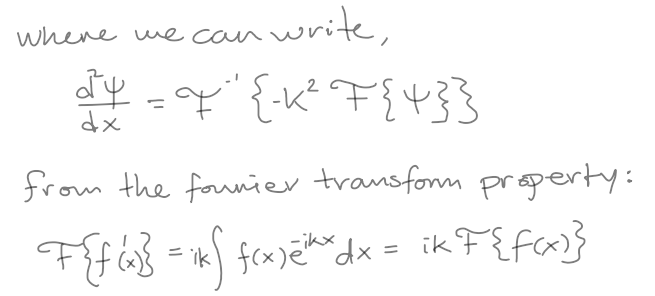 where we can write,
d²ψ/dx = F⁻¹{-k² F{ψ}}
from the fourier transform property:
F{f'(x)} = ik∫ f(x)e^{-ikx}dx = ik F{f(x)}